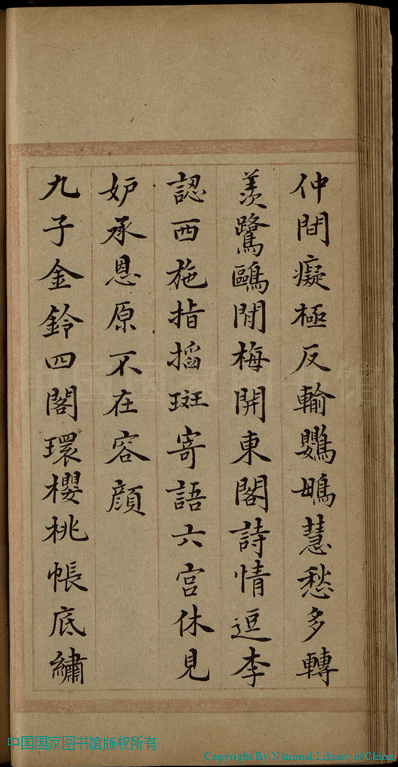 仲間癡極反輸鸚䳇慧愁多轉
羨鷺鷗閒梅開東閣詩情逗李
認西施指搯斑寄語六宮休見
妒承恩原不在容顔
九子金鈴四閣環櫻桃帳底繡
中国国家图书馆版权所有
Copyright By National Library of China